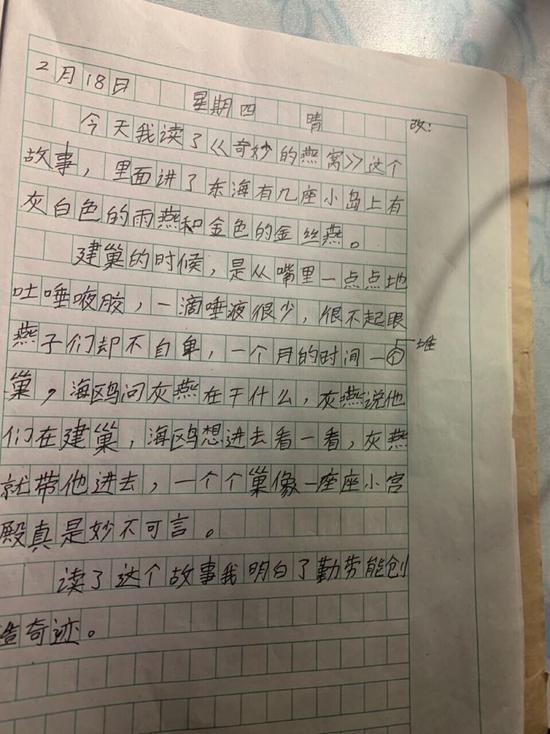 2月18日 星期四 晴
改:
今天我读了《奇妙的燕窝》这个
故事，里面进了东海有几座小岛上有
灰白色的雨燕和金色的金丝燕。
建巢的时候，是从嘴里一点点地
吐唾液胶，一滴唾液很少，很不起眼
燕子们却不自卑，一个月的时间一个
堆
巢，海鸥问灰燕在干什么，灰燕说他
们在建巢，海鸥想进去看一看，灰燕
就带他进去，一个个巢像一座座小宫
殿真是妙不可言。
读了这个故事我明白了勤劳能创
造奇迹。